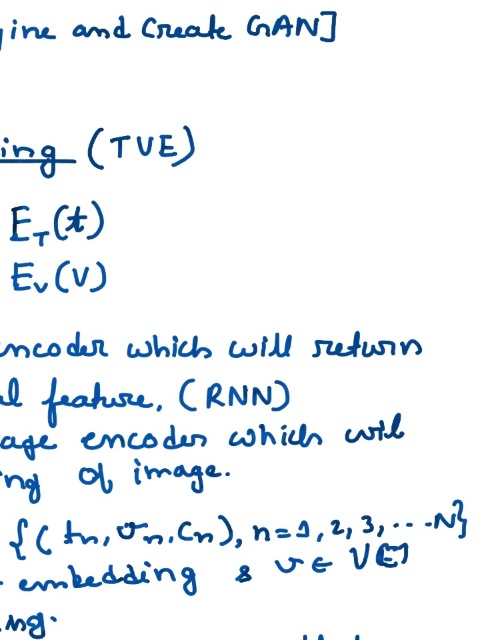 gine and Create GAN]
ing (TVE)
E_T(t)
E_v(v)
encoder which will return
al feature, (RNN)
age encoder which will
ng of image.
{(tn, vn, cn), n=1, 2, 3, ... N}
embedding & v ∈ V(E)
ng.